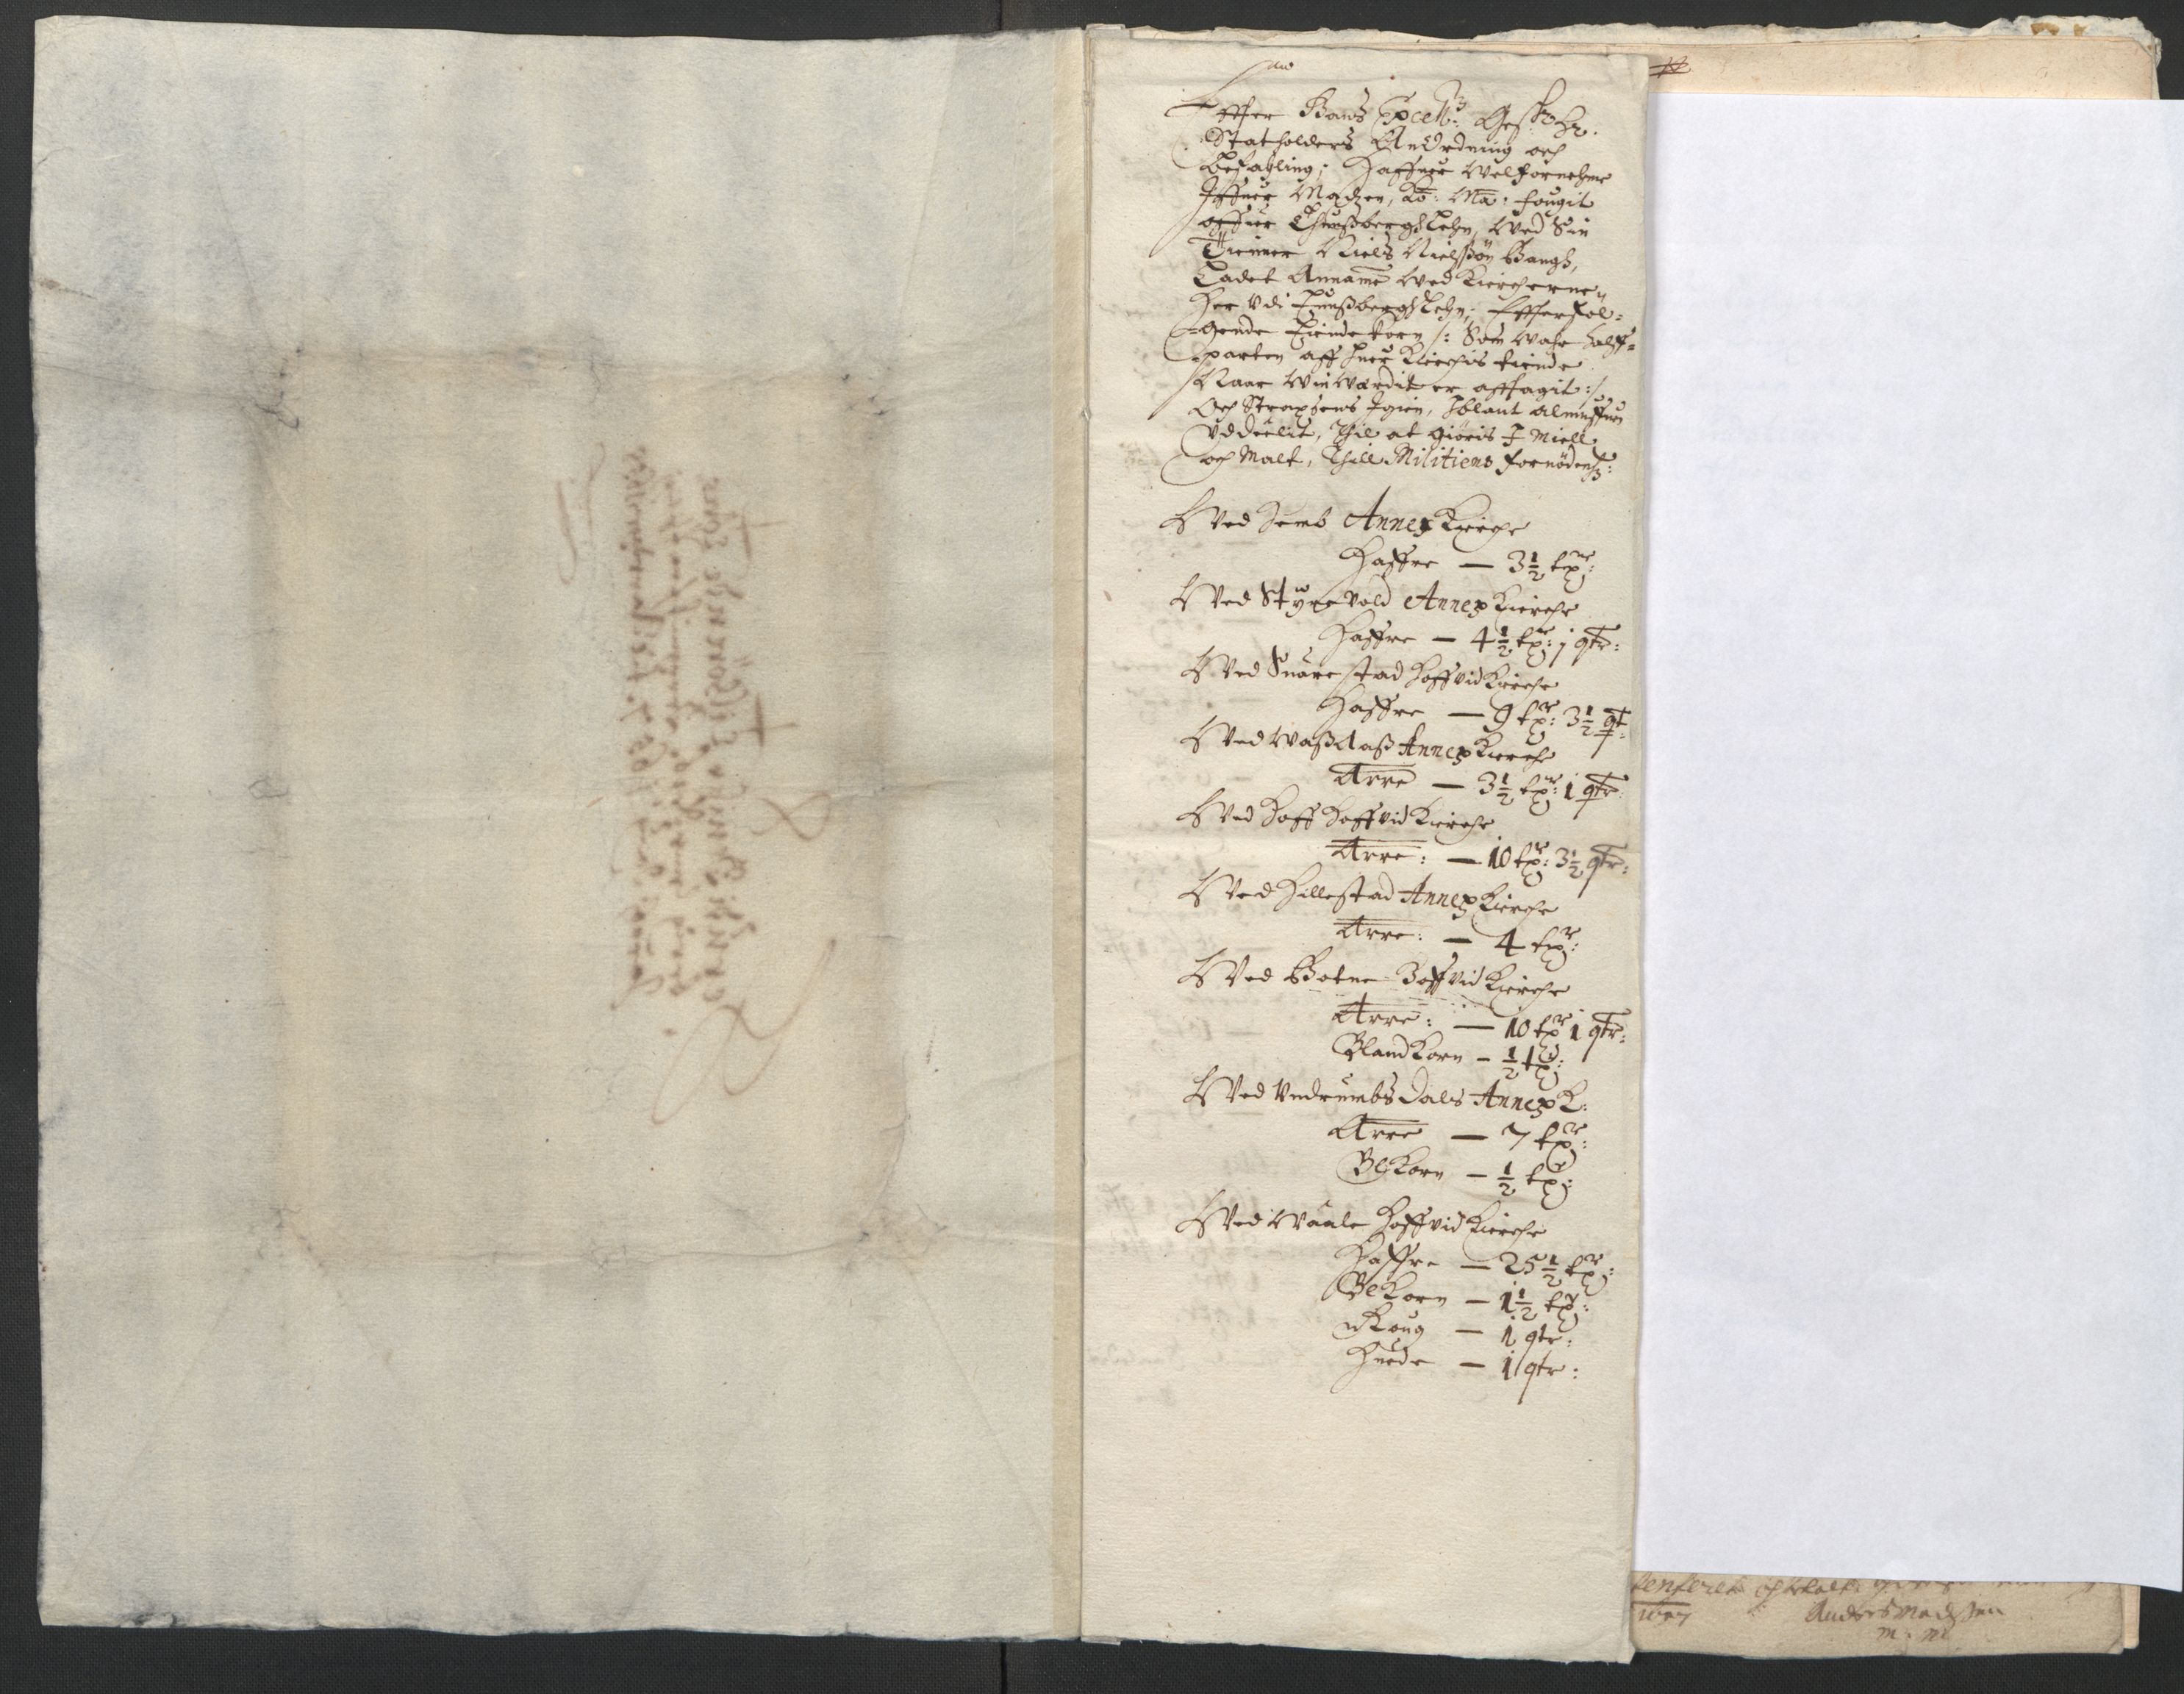 Effter Hans Excell:
Statholders AnOrdning och
Befahling; Haffuer Welfornehme
Iffuer Madzen, Ko: Ma: fougit
offuer Thunßbergs Lehn, Wed Sin
Thienner Niels Nielßøn Bangh,
Ladet Anname Wed Kiercherne
Her Vdi Tunßbergs Lehn, Effterføl:
=gende Tiende Korn /: Som Wahr halff=
parten aff huer Kierchis tiende
Naar Win Wærdit er afftagit :/
Och Strax Igien, Iblant almuffuen
Vddeelit, Thil at giøris I Miell
och Malt, Thill Militiens fornødenh:
Wed Semb Annex Kierche
Haffre — 3½ tpr:
Wed Styrevold Annex Kierche
Haffre — 4½ tpr: j qtr:
Wed Suarestad hoffvid Kierche
Haffre — 9 tpr: 3½ qt:
Wed Waßaaß Annex Kierche
Arre — 3½ tpr: 1 qtr:
Wed Hoff hoffvid Kierche
Arre: — 10 tpr: 3½ qtr:
Wed Hillestad Annex Kierche
Arre: — 4 tpr:
Wed Botne Hoffvid Kierche
Arre: — 10 tpr 1 qtr:
Bland Korn — ½ tp:
Wed Vndrumbs Dals Annex K:
Arre — 7 tpr:
Bl Korn — ½ tp:
Wed Waale Hoffvid Kierche
Haffre — 25½ tpr:
Bl Korn — 1½ tp:
Roug — 1 qtr:
Huede — 1 qtr:
Anders Madßen
m: m